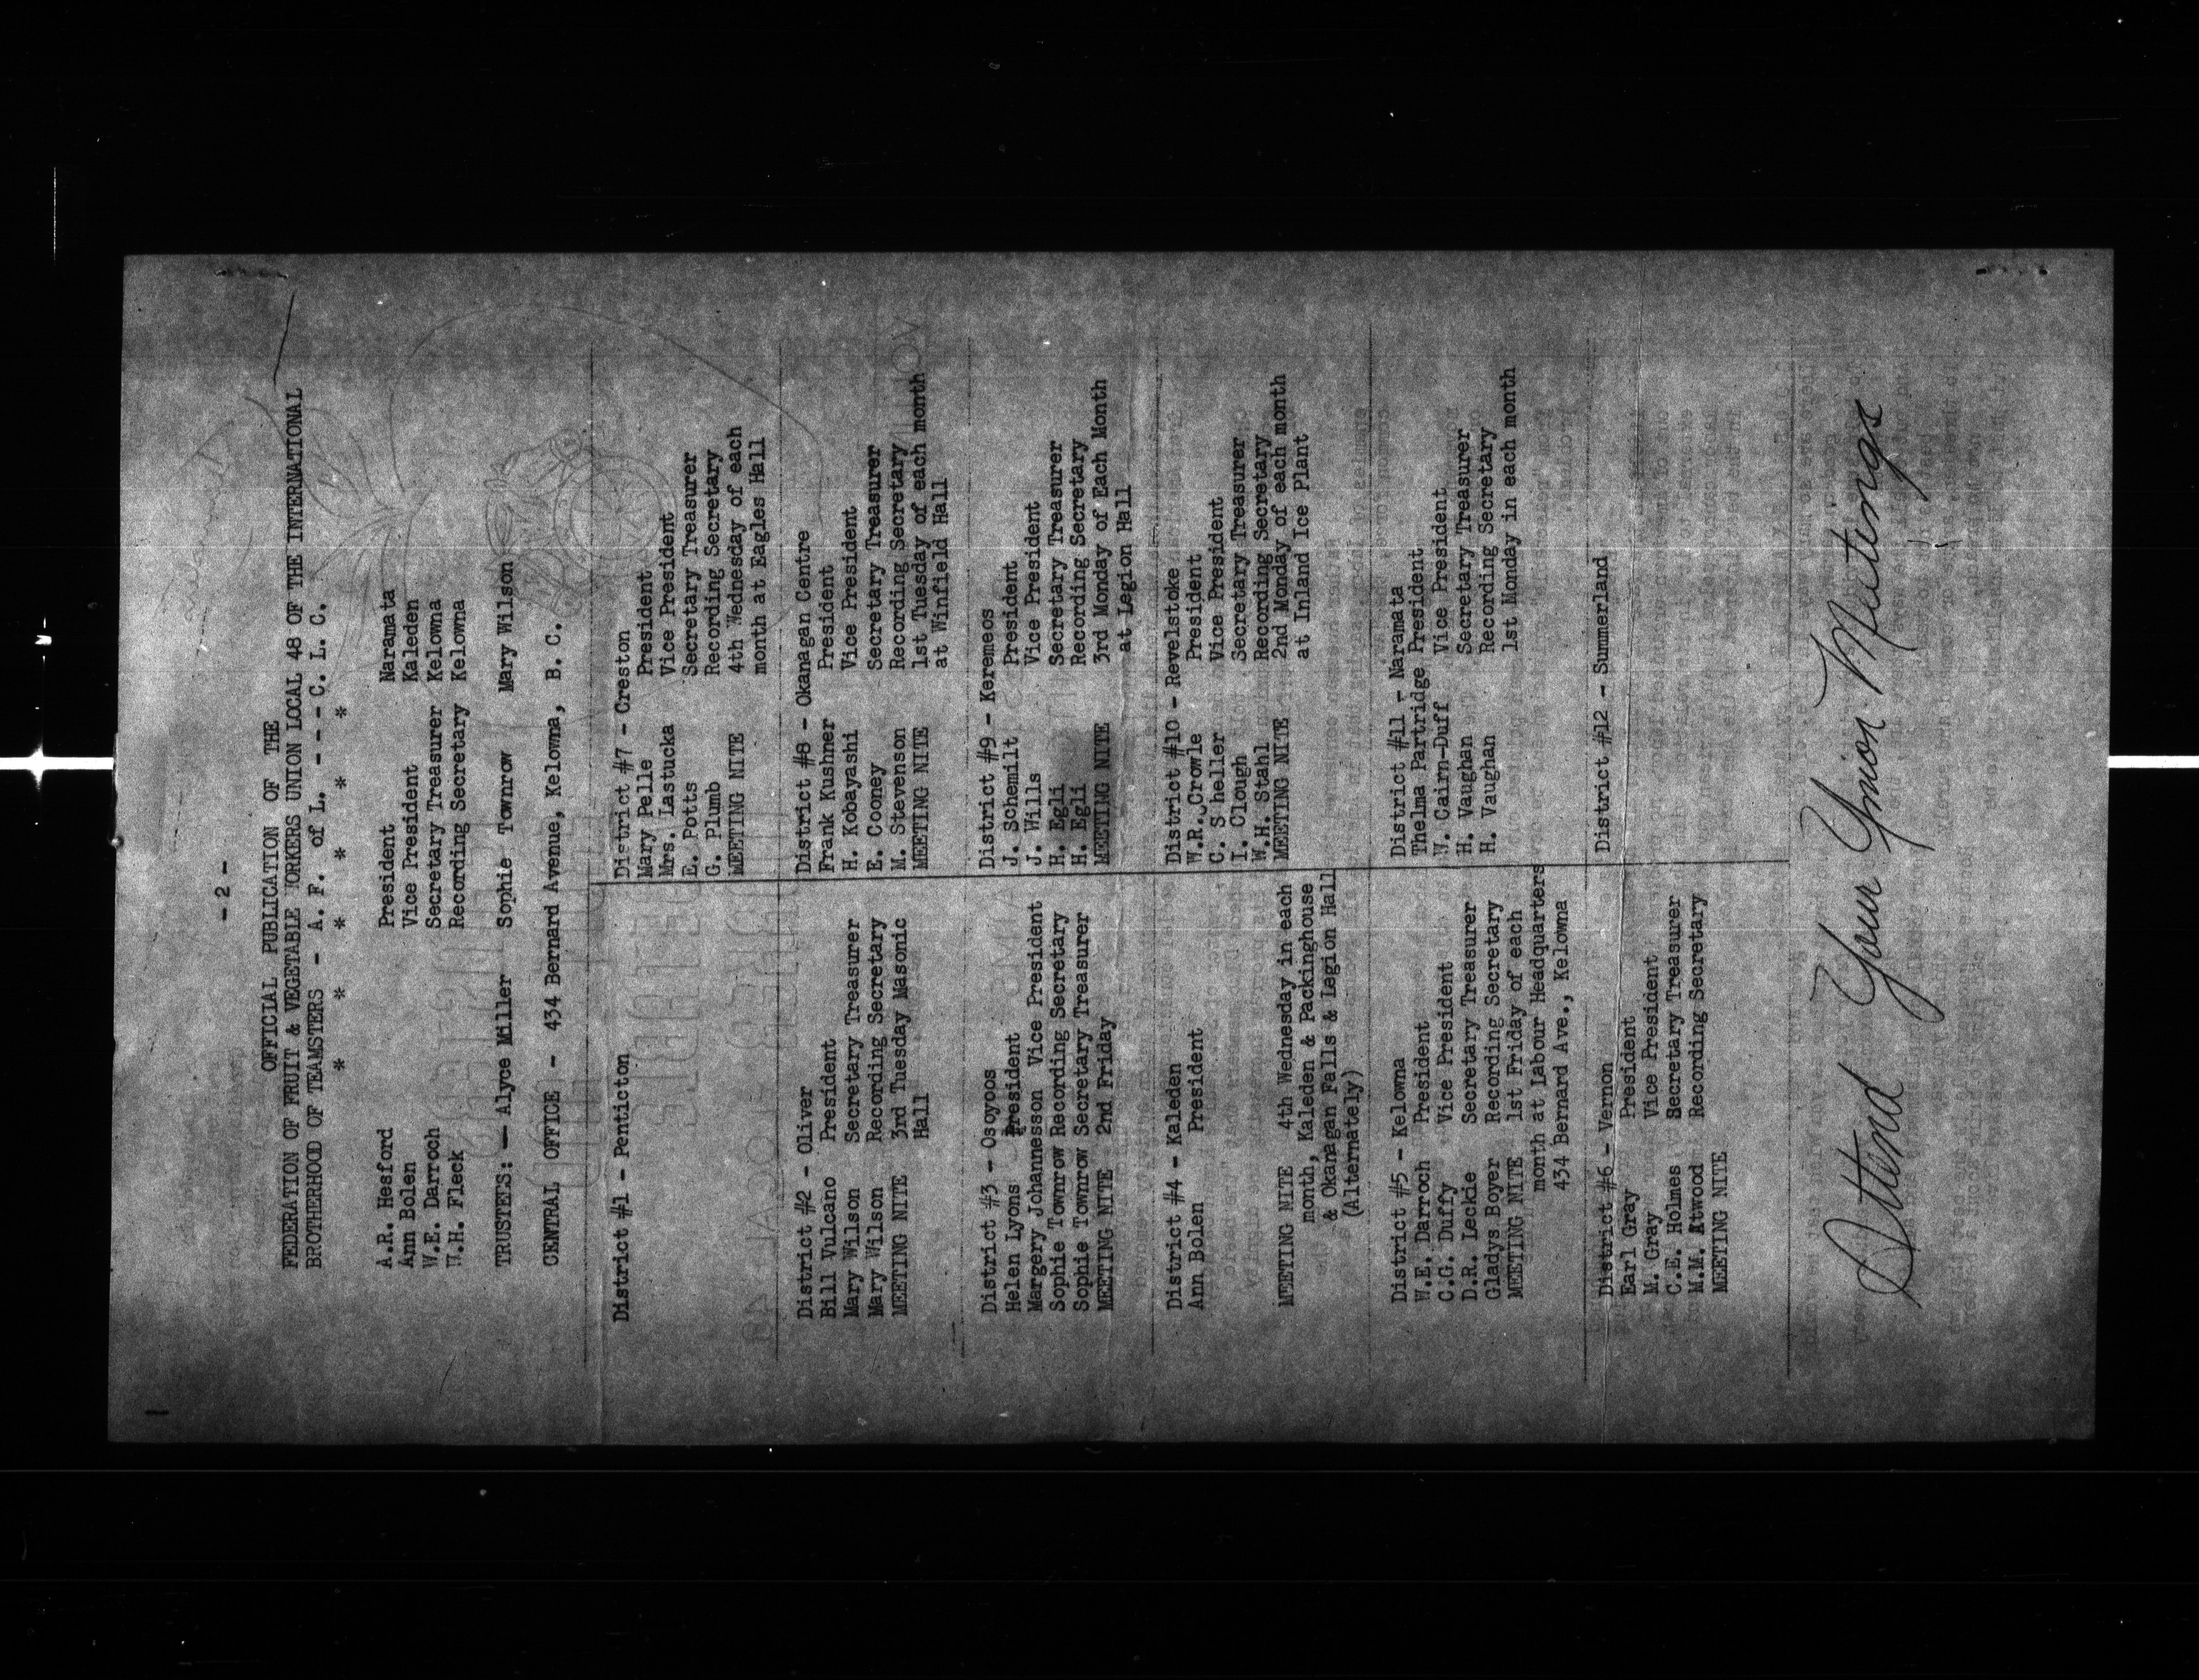 - 2 -
OFFICIAL PUBLICATION OF THE
FEDERATION OF FRUIT & VEGETABLE WORKERS UNION LOCAL 48 OF THE INTERNATIONAL
BROTHERHOOD OF TEAMSTERS - A. F. of L. - - - C. L. C.
* * * * * *
A.R. Hesford President Naramata
Ann Bolen Vice President Kaleden
W.E. Darroch Secretary Treasurer Kelowna
W.H. Fleck Recording Secretary Kelowna
TRUSTEES: — Alyce Miller Sophie Townrow Mary Wilson
CENTRAL OFFICE - 434 Bernard Avenue, Kelowna, B. C.
District #1 - Penticton
District #2 - Oliver
Bill Vulcano President
Mary Wilson Secretary Treasurer
Mary Wilson Recording Secretary
MEETING NITE 3rd Tuesday Masonic
Hall
District #3 - Osoyoos
Helen Lyons President
Margery Johannesson Vice President
Sophie Townrow Recording Secretary
Sophie Townrow Secretary Treasurer
MEETING NITE 2nd Friday
District #4 - Kaleden
Ann Bolen President
MEETING NITE 4th Wednesday in each
month, Kaleden & Packinghouse
& Okanagan Falls & Legion Hall
(Alternately)
District #5 - Kelowna
W.E. Darroch President
C.G. Duffy Vice President
D.R. Leckie Secretary Treasurer
Gladys Boyer Recording Secretary
MEETING NITE 1st Friday of each
month at Labour Headquarters
434 Bernard Ave., Kelowna
District #6 - Vernon
Earl Gray President
M. Gray Vice President
C.E. Holmes Secretary Treasurer
M.M. Atwood Recording Secretary
MEETING NITE
District #7 - Creston
Mary Pelle President
Mrs. Lastucka Vice President
E. Potts Secretary Treasurer
G. Plumb Recording Secretary
MEETING NITE 4th Wednesday of each
month at Eagles Hall
District #8 - Okanagan Centre
Frank Kushner President
H. Kobayashi Vice President
E. Cooney Secretary Treasurer
M. Stevenson Recording Secretary
MEETING NITE 1st Tuesday of each month
at Winfield Hall
District #9 - Keremeos
J. Schemilt President
J. Wills Vice President
H. Egli Secretary Treasurer
H. Egli Recording Secretary
MEETING NITE 3rd Monday of Each Month
at Legion Hall
District #10 - Revelstoke
W.R. Crowle President
C. Sheller Vice President
I. Clough Secretary Treasurer
W.H. Stahl Recording Secretary
MEETING NITE 2nd Monday of each month
at Inland Ice Plant
District #11 - Naramata
Thelma Partridge President
W. Cairn-Duff Vice President
H. Vaughan Secretary Treasurer
H. Vaughan Recording Secretary
1st Monday in each month
District #12 - Summerland
Attend Your Union Meetings